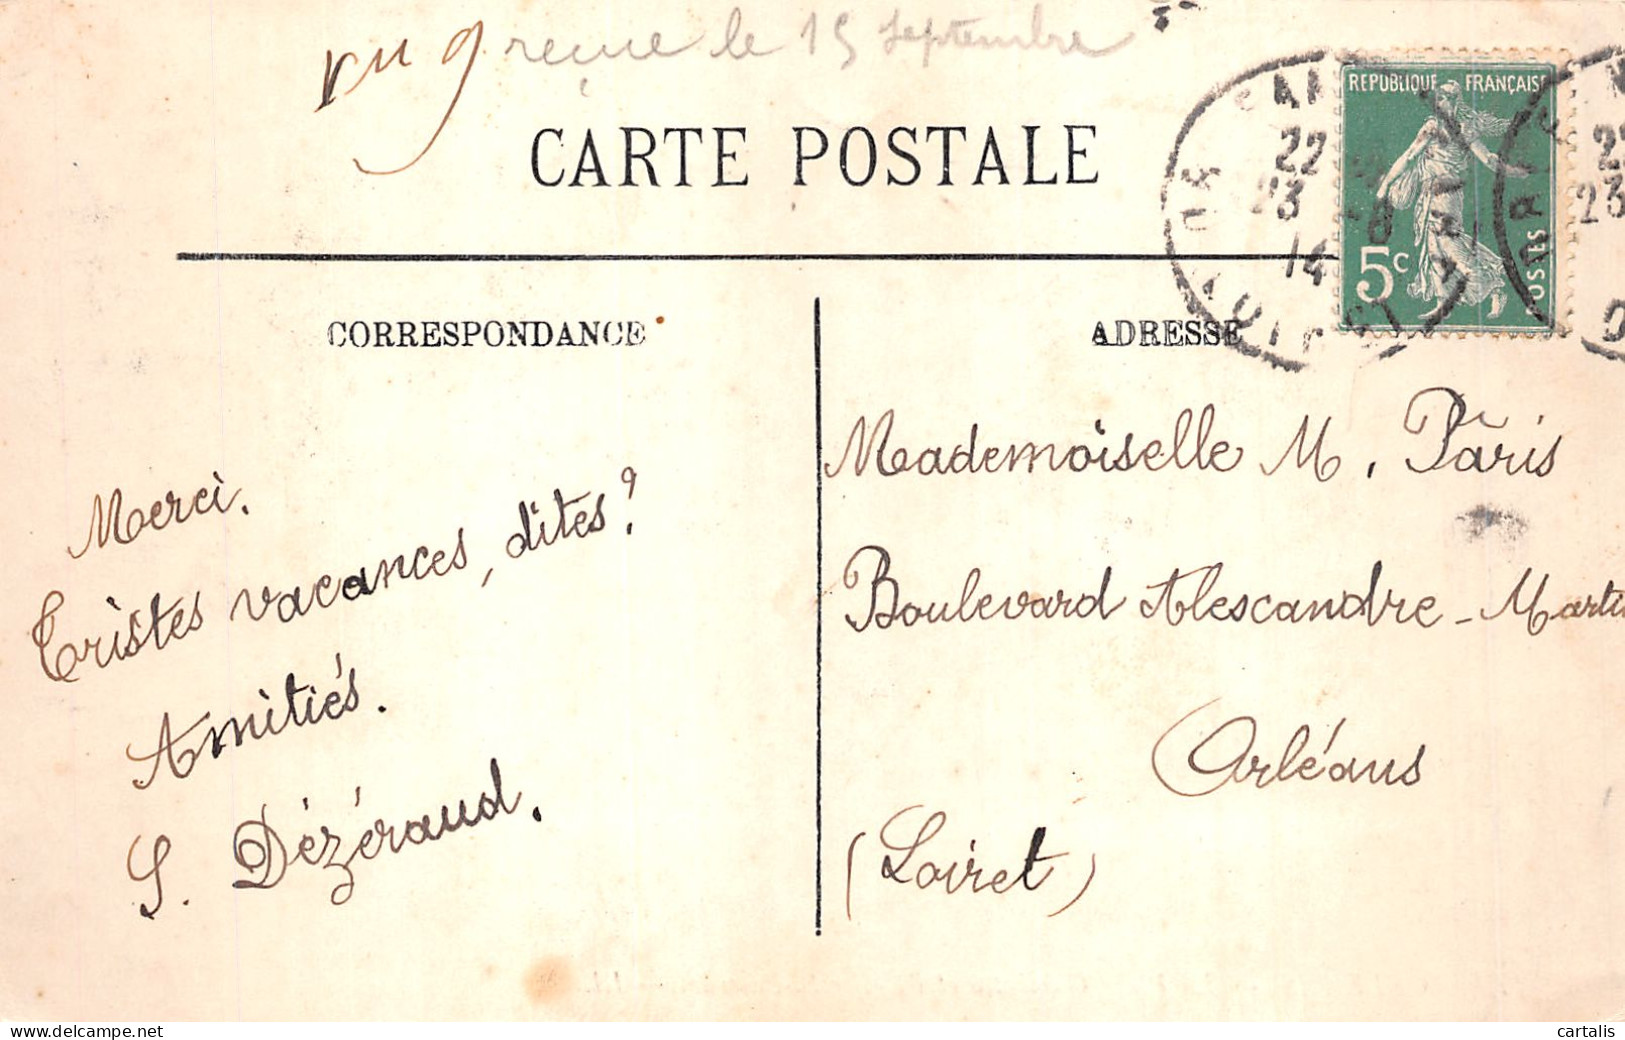 reçue le 15 Septembre
CARTE POSTALE
REPUBLIQUE FRANÇAISE
5c
POSTES
22
23 - 8
14
22
23
CORRESPONDANCE
ADRESSE
Merci.
Tristes vacances, dites?
Amitiés.
S. Dézéraud.
Mademoiselle M. Pâris
Boulevard Alescandre - Martin
Orléans
(Loiret)
cartalis